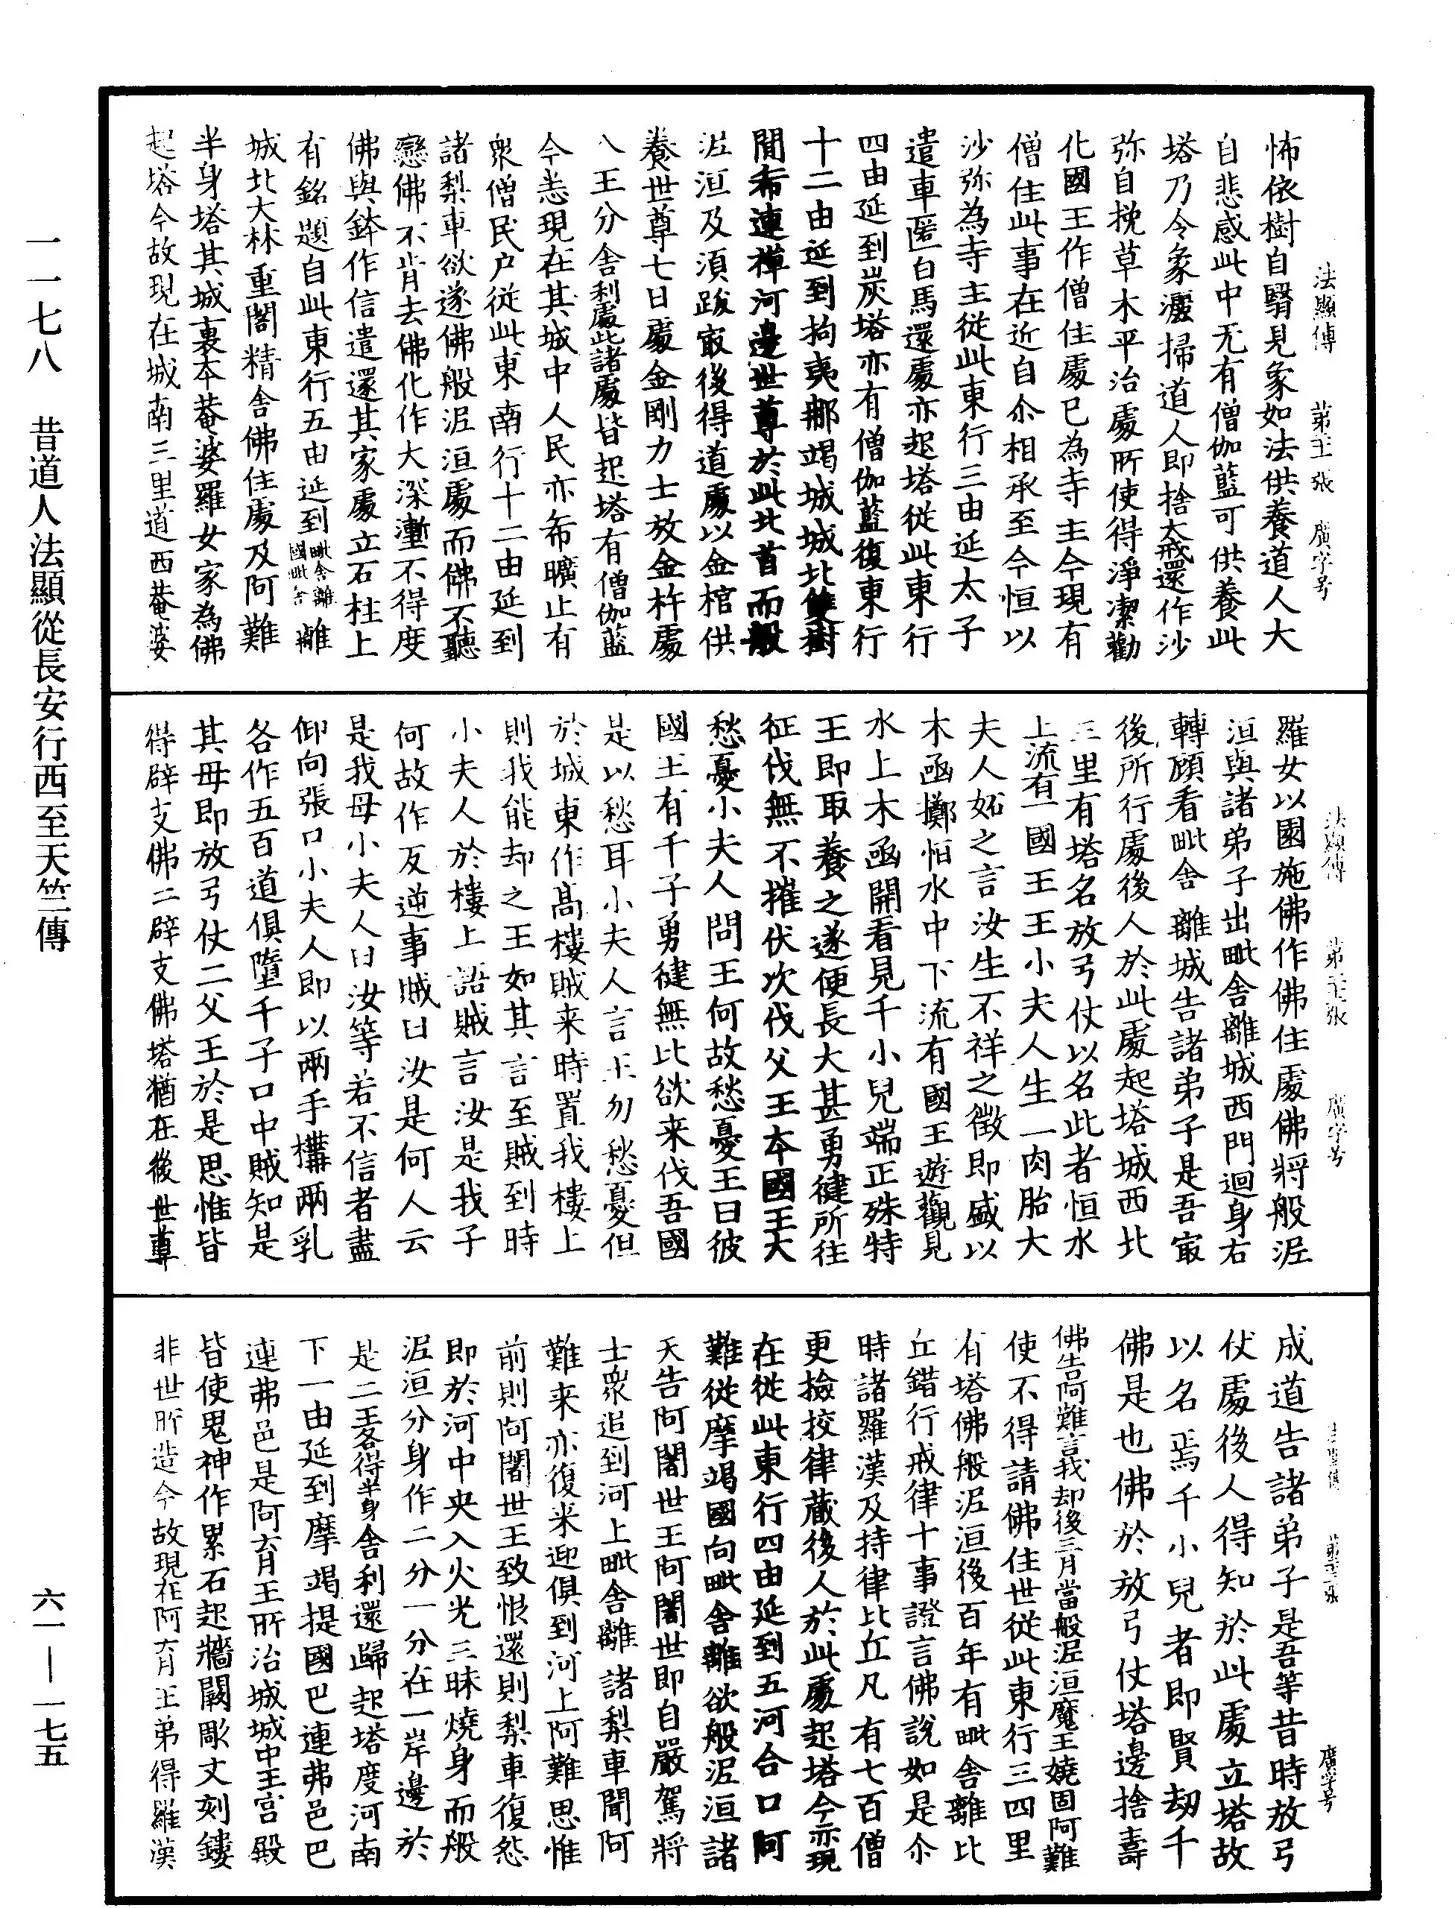 法顯傳 第二十一張 廣字号
怖依樹自翳見象如法供養道人大
自悲感此中无有僧伽藍可供養此
塔乃令象灑掃道人即捨大戒還作沙
弥自挽草木平治處所使得淨潔勸
化國王作僧住處已為寺主今現有
僧住此事在近自尒相承至今恒以
沙弥為寺主從此東行三由延太子
遣車匿白馬還處亦起塔從此東行
四由延到炭塔亦有僧伽藍復東行
十二由延到拘夷那竭城城北雙樹
間希連禪河邊世尊於此北首而般
泥洹及須跋㝡後得道處以金棺供
養世尊七日處金剛力士放金杵處
八王分舍利處此諸處皆起塔有僧伽藍
今悉現在其城中人民亦希曠止有
衆僧民户從此東南行十二由延到
諸梨車欲遂佛般泥洹處而佛不聽
戀佛不肯去佛化作大深壍不得度
佛與鉢作信遣還其家處立石柱上
有銘題自此東行五由延到毗舍離國毗舍離
城北大林重閣精舍佛住處及阿難
半身塔其城裏本菴婆羅女家為佛
起塔今故現在城南三里道西菴婆
羅女以園施佛作佛住處佛將般泥
洹與諸弟子出毗舍離城西門迴身右
轉顧看毗舍離城告諸弟子是吾㝡
後所行處後人於此處起塔城西北
三里有塔名放弓仗以名此者恒水
上流有一國王王小夫人生一肉胎大
夫人妬之言汝生不祥之徵即盛以
木函擲恒水中下流有國王遊觀見
水上木函開看見千小兒端正殊特
王即取養之遂便長大甚勇健所往
征伐無不摧伏次伐父王本國王大
愁憂小夫人問王何故愁憂王曰彼
國王有千子勇健無比欲来伐吾國
是以愁耳小夫人言王勿愁憂但
於城東作髙樓賊来時置我樓上
則我能却之王如其言至賊到時
小夫人於樓上語賊言汝是我子
何故作反逆事賊曰汝是何人云
是我母小夫人曰汝等若不信者盡
仰向張口小夫人即以兩手構兩乳
各作五百道俱墮千子口中賊知是
其母即放弓仗二父王於是思惟皆
得辟支佛二辟支佛塔猶在後世尊
成道告諸弟子是吾等昔時放弓
仗處後人得知於此處立塔故
以名焉千小兒者即賢劫千
佛是也佛於放弓仗塔邊捨壽
佛告阿難言我却後三月當般泥洹魔王嬈固阿難
使不得請佛住世從此東行三四里
有塔佛般泥洹後百年有毗舍離比
丘錯行戒律十事證言佛說如是尒
時諸羅漢及持律比丘凡有七百僧
更撿挍律藏後人於此處起塔今亦現
在從此東行四由延到五河合口阿
難從摩竭國向毗舍離欲般泥洹諸
天告阿闍世王阿闍世即自嚴駕將
士衆追到河上毗舍離諸梨車聞阿
難来亦復来迎俱到河上阿難思惟
前則阿闍世王致恨還則梨車復怨
即於河中央入火光三昧燒身而般
泥洹分身作二分一分在一岸邊於
是二王各得半身舍利還歸起塔度河南
下一由延到摩竭提國巴連弗邑巴
連弗邑是阿育王所治城城中王宫殿
皆使鬼神作累石起牆闕彫文刻鏤
非世所造今故現在阿育王弟得羅漢
一一七八 昔道人法顯從長安行西至天竺傳
六一—一七五